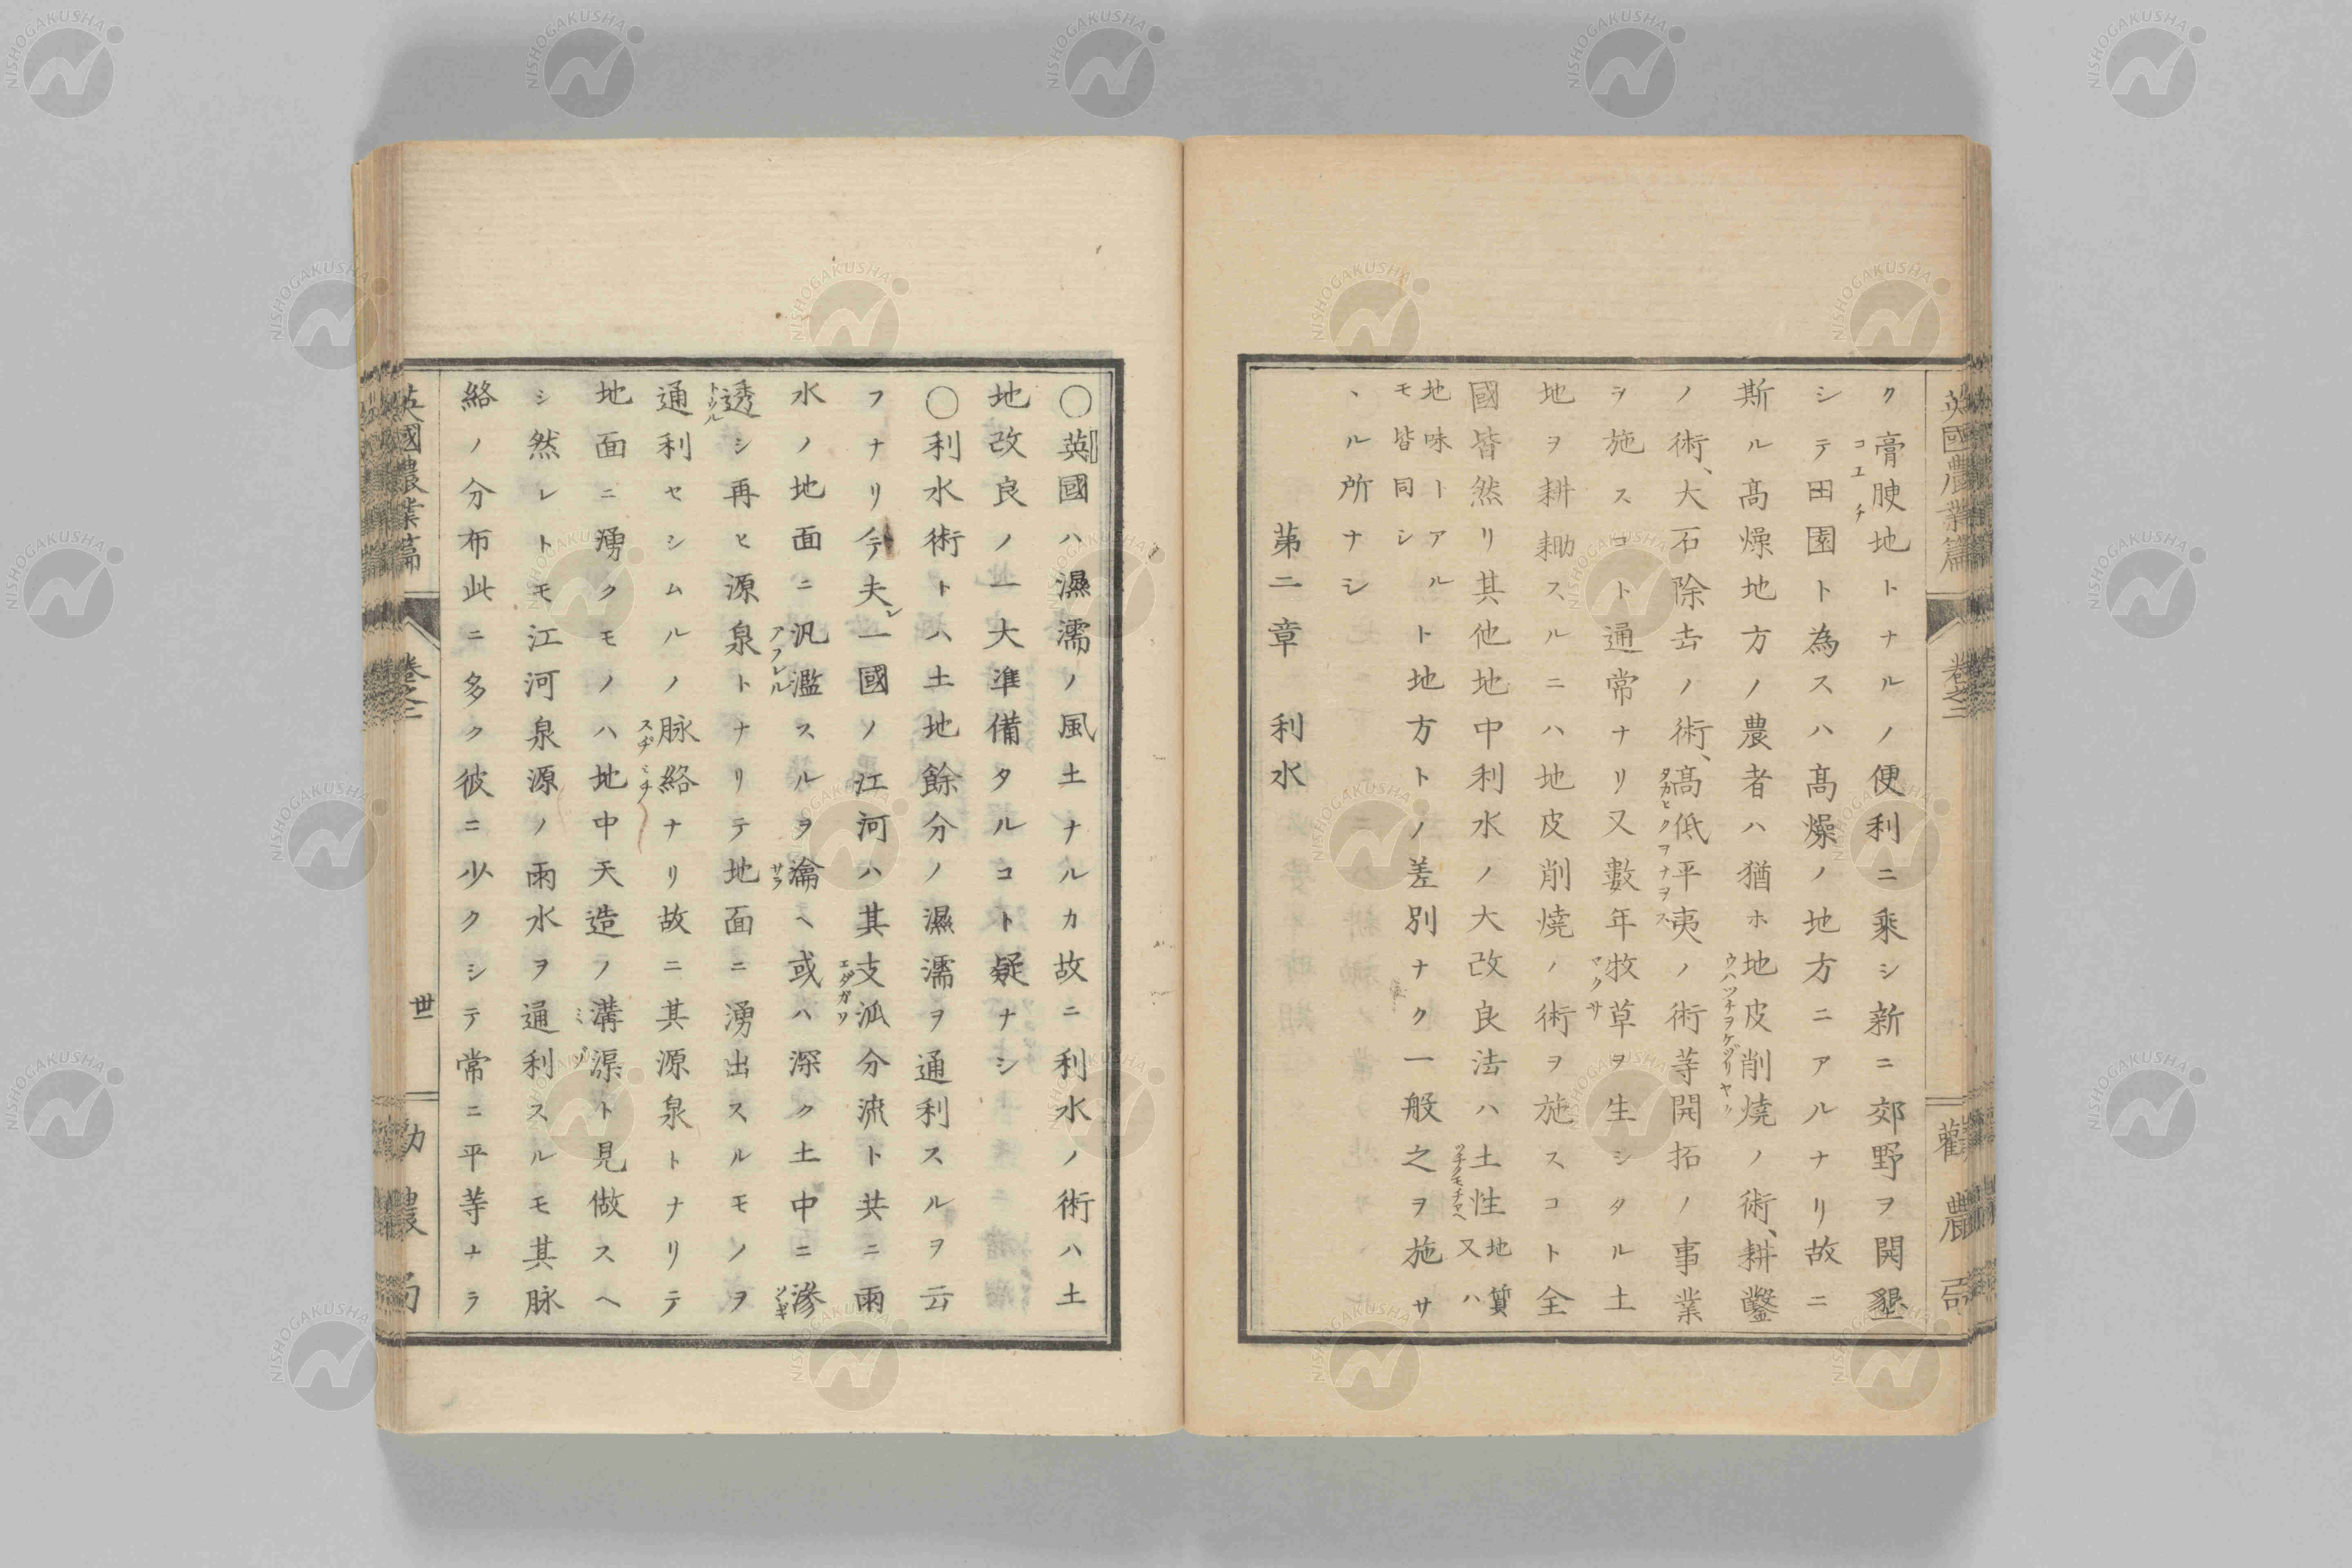 英國農業篇
卷之二
勸農局
ク膏腴地トナルノ便利ニ乘シ新ニ郊野ヲ開墾
コエチ
シテ田園ト為スハ髙燥ノ地方ニアルナリ故ニ
斯ル髙燥地方ノ農者ハ猶ホ地皮削燒ノ術、耕鑿
ウハツチヲケヅリヤク
ノ術、大石除去ノ術、髙低平夷ノ術等開拓ノ事業
タカヒクヲナヲス
ヲ施スコト通常ナリ又數年牧草ヲ生シタル土
マクサ
地ヲ耕耡スルニハ地皮削燒ノ術ヲ施スコト全
國皆然リ其他地中利水ノ大改良法ハ土性地質又ハ
ツチノモチマヘ
地味トアルモ皆同シト地方トノ差別ナク一般之ヲ施サ
、ル所ナシ
第二章 利水
〇英國ハ濕濡ノ風土ナルカ故ニ利水ノ術ハ土
地改良ノ一大準備タルコト疑ナシ
〇利水術トハ土地餘分ノ濕濡ヲ通利スルヲ云
フナリ今夫レ一國ノ江河ハ其支泒分流ト共ニ雨
エダガワ
水ノ地面ニ汎濫スルヲ瀹ヘ或ハ深ク土中ニ滲
アフレル
サラ
透シ再ヒ源泉トナリテ地面ニ湧出スルモノヲ
トウル
通利セシムルノ脉絡ナリ故ニ其源泉トナリテ
スヂミチ
地面ニ湧クモノハ地中天造ノ溝渠ト見做スヘ
ミゾ
シ然レトモ江河泉源ノ雨水ヲ通利スルモ其脉
絡ノ分布此ニ多ク彼ニ少クシテ常ニ平等ナラ
英國農業篇
卷之二
丗一
勸農局